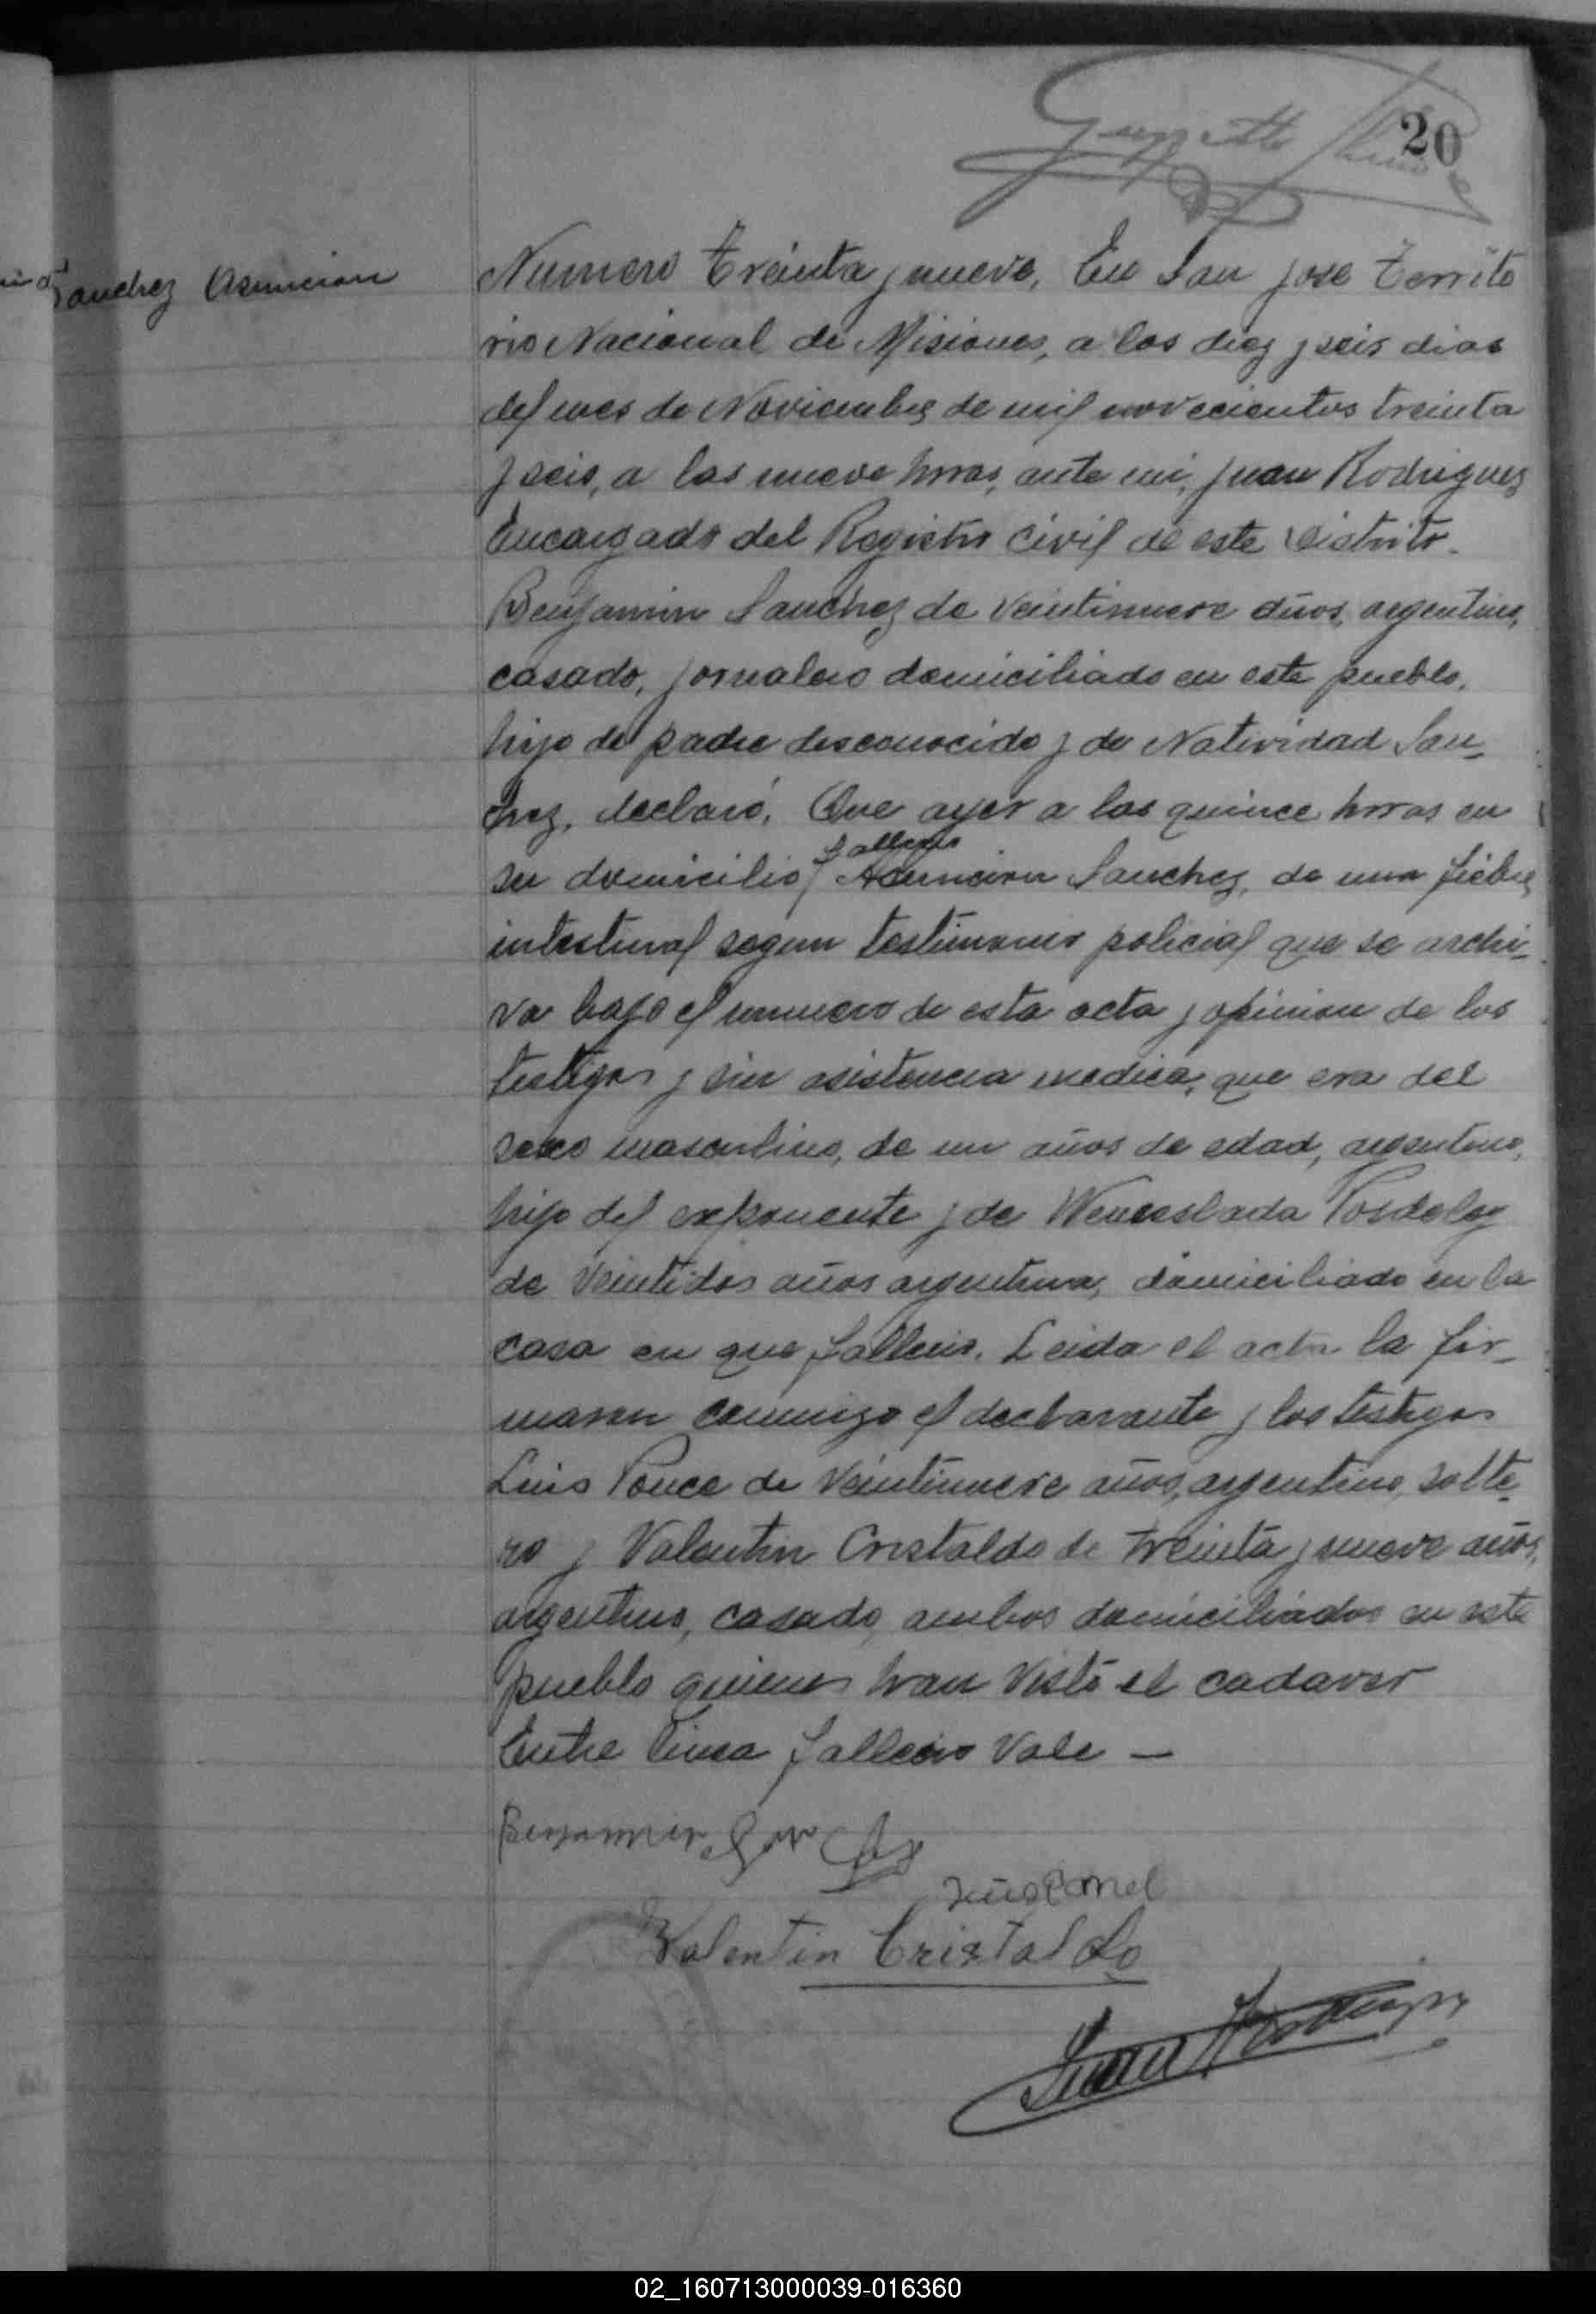 20
Sanchez Asuncion
Numero treinta y nueve, En San Jose Territo
rio Nacional de Misiones, a los diez y seis dias
del mes de Noviembre de mil novecientos treinta
y seis, a las nueve horas, ante mi, Juan Rodriguez
Encargado del Registro Civil de este distrito.
Benjamin Sanchez de veintinueve años, argentino,
casado, jornalero domiciliado en este pueblo,
hijo de padre desconocido y de Natividad San-
chez, declaró, Que ayer a las quince horas en
fallecio
su domicilio Asuncion Sanchez, de una fiebre
intestinal segun testimonio policial que se archi-
va bajo el numero de esta acta y opinion de los
testigos y sin asistencia medica, que era del
sexo masculino, de un años de edad, argentino,
hijo del exponente y de Wenceslada
de veintidos años argentina, domiciliado en la
casa en que fallecio. Leida el acta la fir-
maron conmigo el declarante y los testigos
Luis Ponce de veintinueve años, argentino, solte-
ro y Valentin Cristaldo de treinta y nueve años,
argentino, casado, ambos domiciliados en este
pueblo quienes han visto el cadaver
Entre linea fallecio Vale —
Benjamin Sanchez
Valentin Cristaldo
Juan Rodriguez
02_160713000039-016360